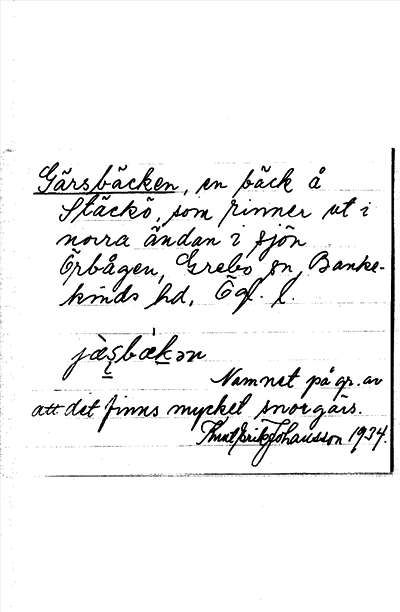 Gärsbäcken, en bäck å
Stäckö, som rinner ut i
norra ändan i sjön
Örbågen, Grebo sn, Banke-
kinds hd, Ög. l.
Namnet på gr. av
att det finns mycket snorgärs.
Knut Erik Johansson 1934.